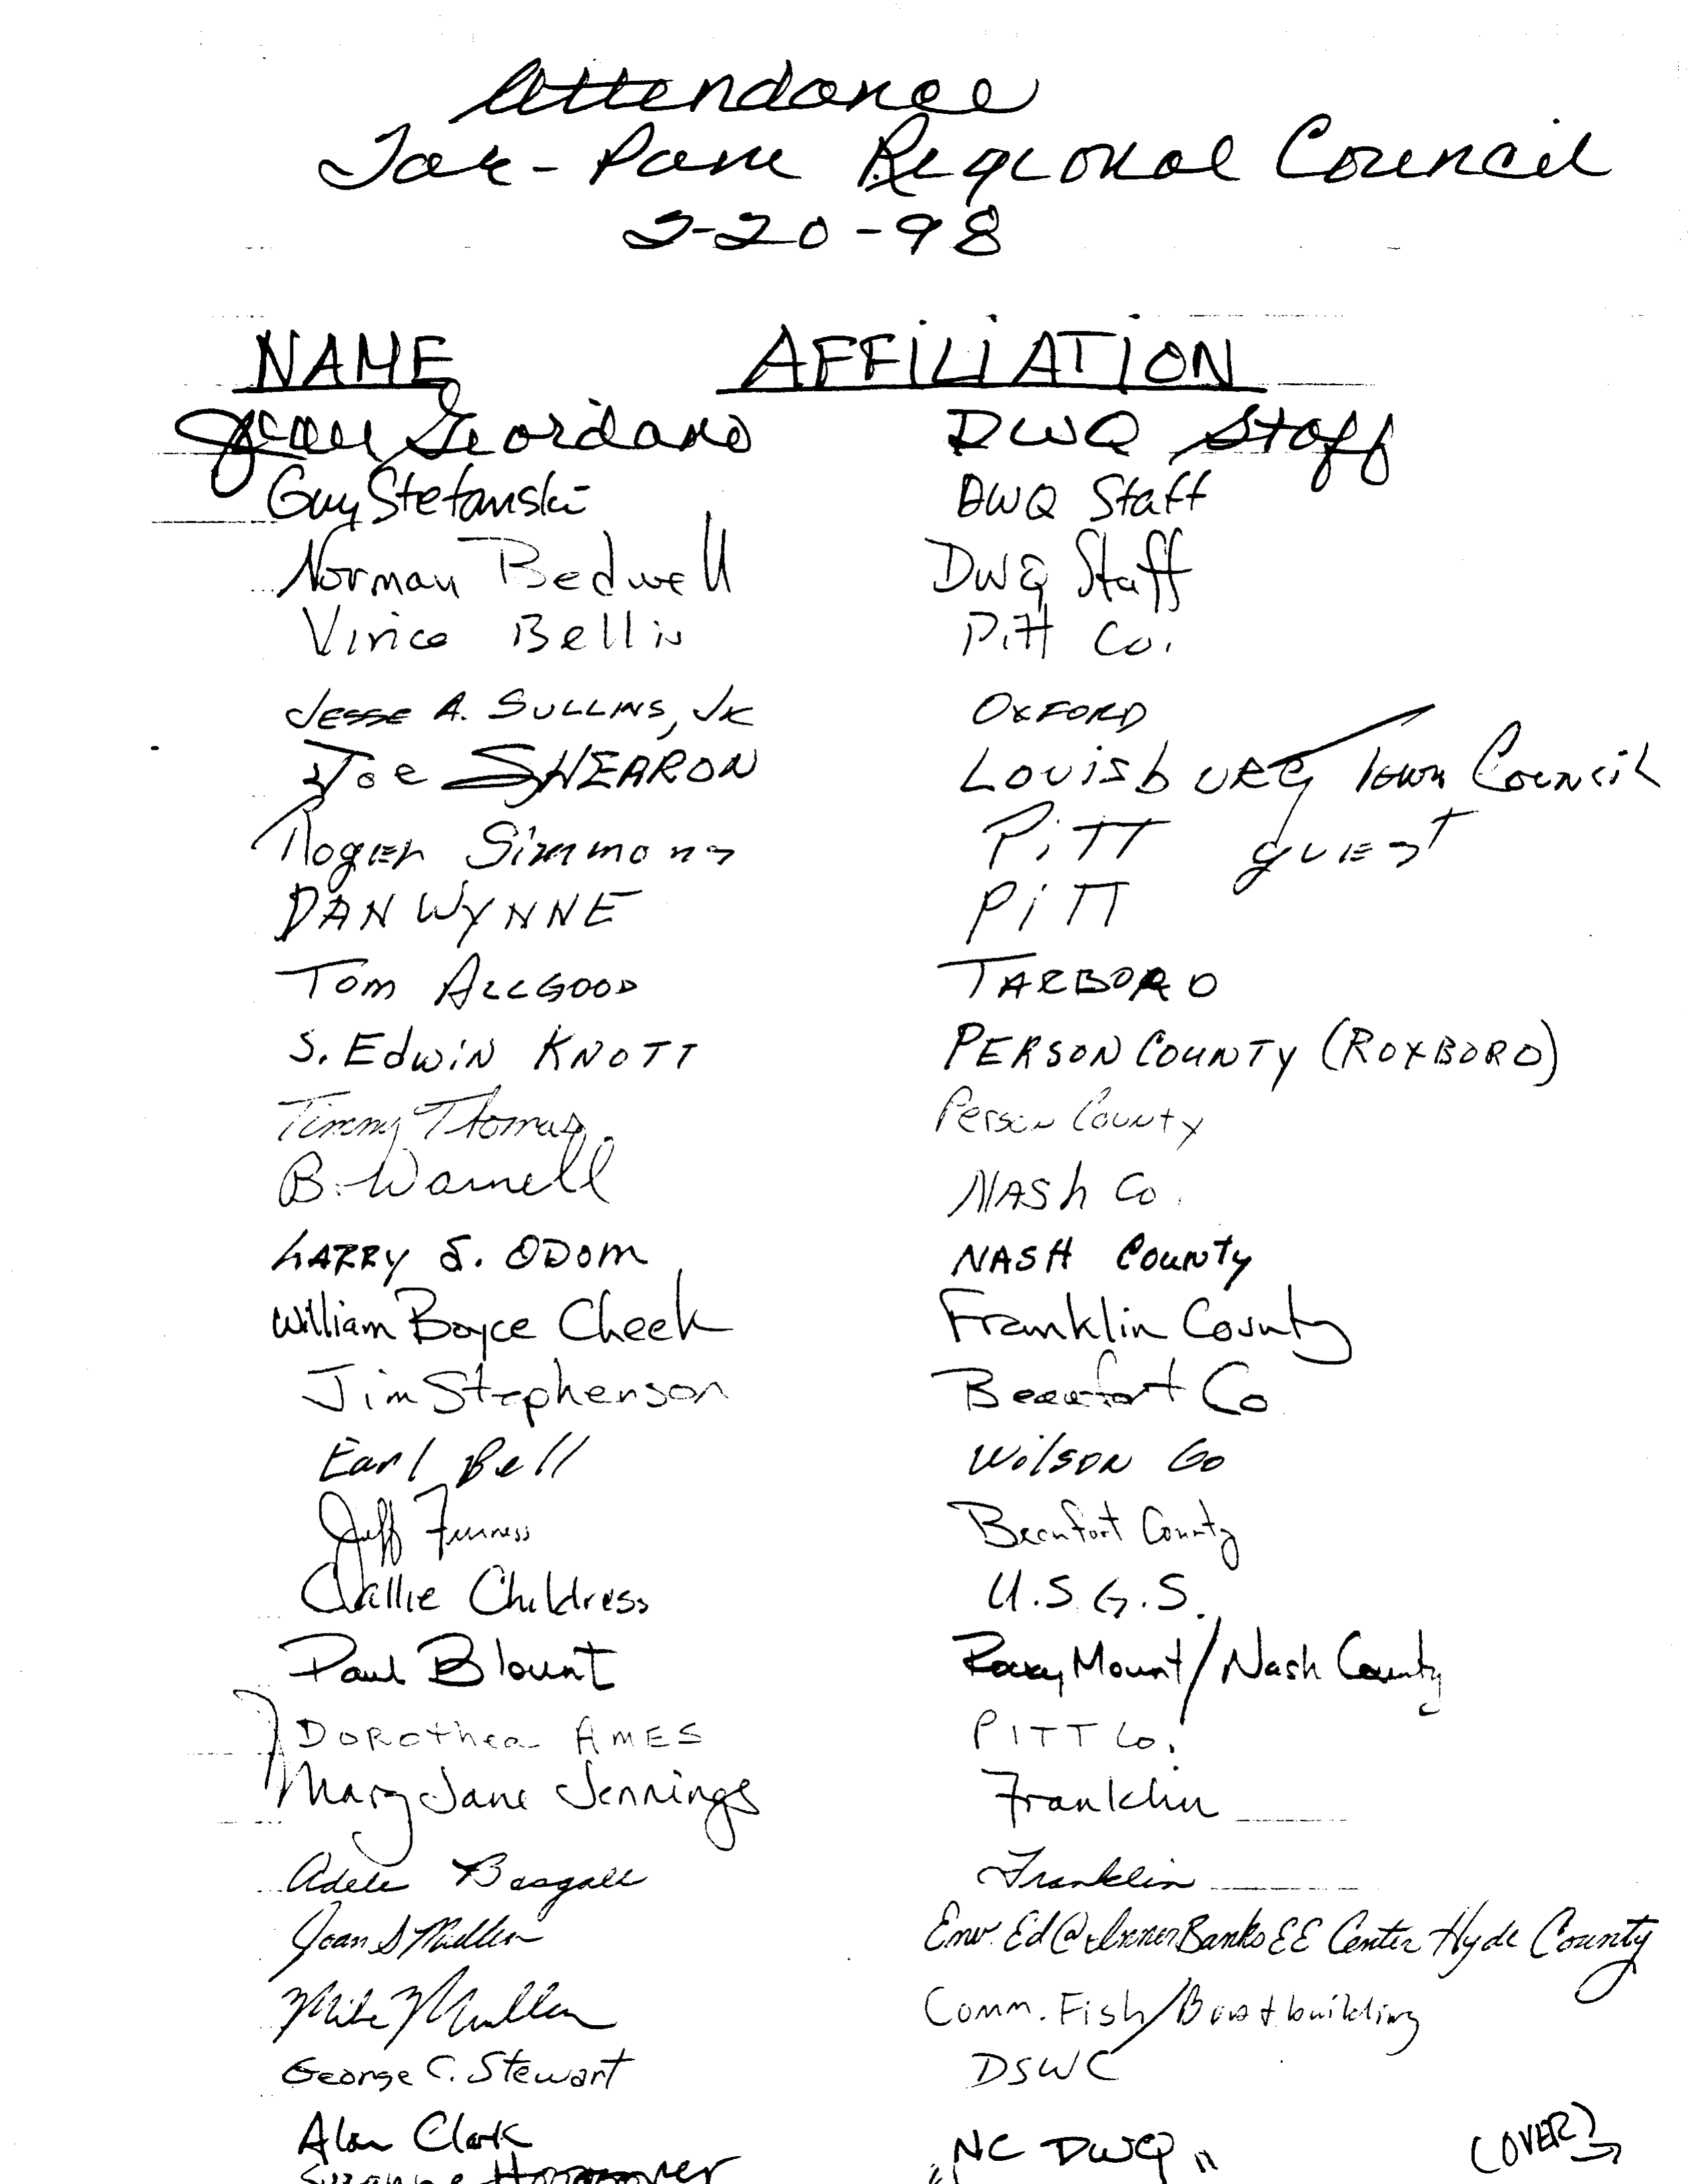 Attendance
Tar-Pam Regional Council
2-20-98
NAME AFFILIATION
Joan Giordano DWQ Staff
Guy Stefanski DWQ Staff
Norman Bedwell DWQ Staff
Vince Bellis Pitt Co.
Jesse A. Sullins, Jr OXFORD
Joe SHEARON Louisburg Town Council
Roger Simmons PiTT guest
DAN WYNNE PiTT
Tom ALLGOOD TARBORO
S. Edwin KNOTT PERSON COUNTY (ROXBORO)
Timmy Thomas Person County
B. Warnell NASh Co.
LARRY S. ODOM NASH COUNTY
William Boyce Cheek Franklin County
Jim Stephenson Beaufort Co
Earl Bell Wilson Co
Jeff Furness Beaufort County
Callie Childress U.S.G.S.
Paul Blount Rocky Mount/Nash County
DOROthea AMES PITT Co.
Mary Jane Jennings Franklin
Adele Franklin
Joan S Mullen Env. Ed @ Inner Banks EE Center Hyde County
Mike Mullen Comm. Fish/Boatbuilding
George C. Stewart DSWC
Alan Clark NC DWQ (OVER)
Suzanne " "